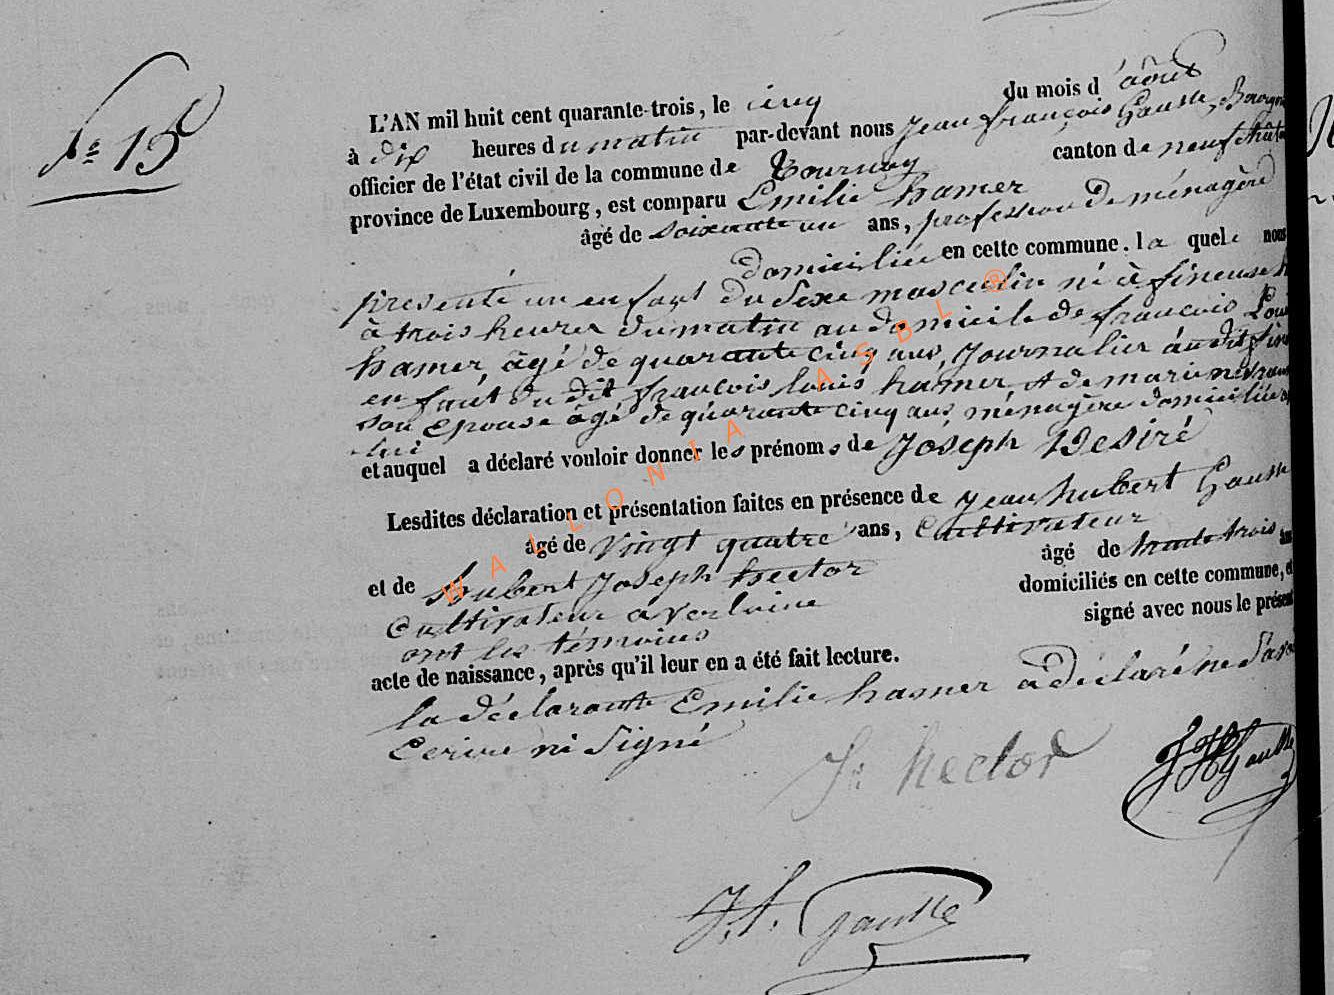 No 15
L'AN mil huit cent quarante-trois, le cinq du mois d'août
à dix heures du matin par-devant nous Jean françois Gausse, Bourgm
officier de l'état civil de la commune de Tournay canton de neufchâte
province de Luxembourg, est comparu Emilie hamer
âgé de soixante un ans, profession de ménagère
domiciliée en cette commune. la quele nous
présenté un enfant du sexe masculin né à fineuse
à trois heures du matin au domicile de françois Loui
hamer, âgé de quarante cinq ans, Journalier au dit fine
enfant du dit françois louis hamer et de marie
son epouse âgé de quarante cinq ans, ménagère domiciliée
lui
et auquel a déclaré vouloir donner les prénoms de Joseph Desiré
Lesdites déclaration et présentation faites en présence de Jean hubert Gausse
âgé de vingt quatre ans, Cultivateur
et de hubert Joseph hector âgé de trente trois ans
Cultivateur a verlaine domiciliés en cette commune, et
ont les témoins signé avec nous le présent
acte de naissance, après qu'il leur en a été fait lecture.
la déclarante Emilie hamer a déclaré ne savo
Ecrire ni Signé
J. hector
JH Gausse
J.f. Gausse
WALLONIA ASBL ®